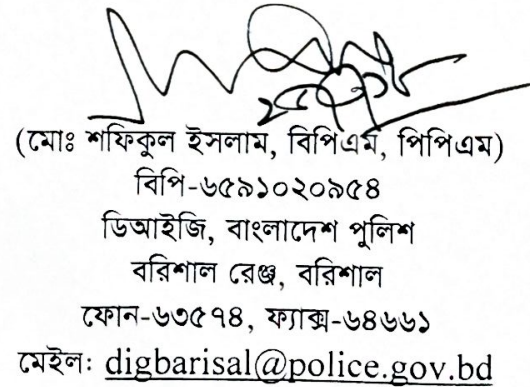 (মোঃ শফিকুল ইসলাম, বিপিএম, পিপিএম)
বিপি-৬৫৯১০২০৯৫৪
ডিআইজি, বাংলাদেশ পুলিশ
বরিশাল রেঞ্জ, বরিশাল
ফোন-৬৩৫৭৪, ফ্যাক্স-৬৪৬৬১
মেইলঃ digbarisal@police.gov.bd